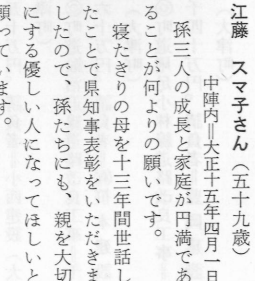 江藤 スマ子さん（五十九歳）
中陣内＝大正十五年四月一日
孫三人の成長と家庭が円満であ
ることが何よりの願いです。
寝たきりの母を十三年間世話し
たことで県知事表彰をいただきま
したので、孫たちにも、親を大切
にする優しい人になってほしいと
願っています。